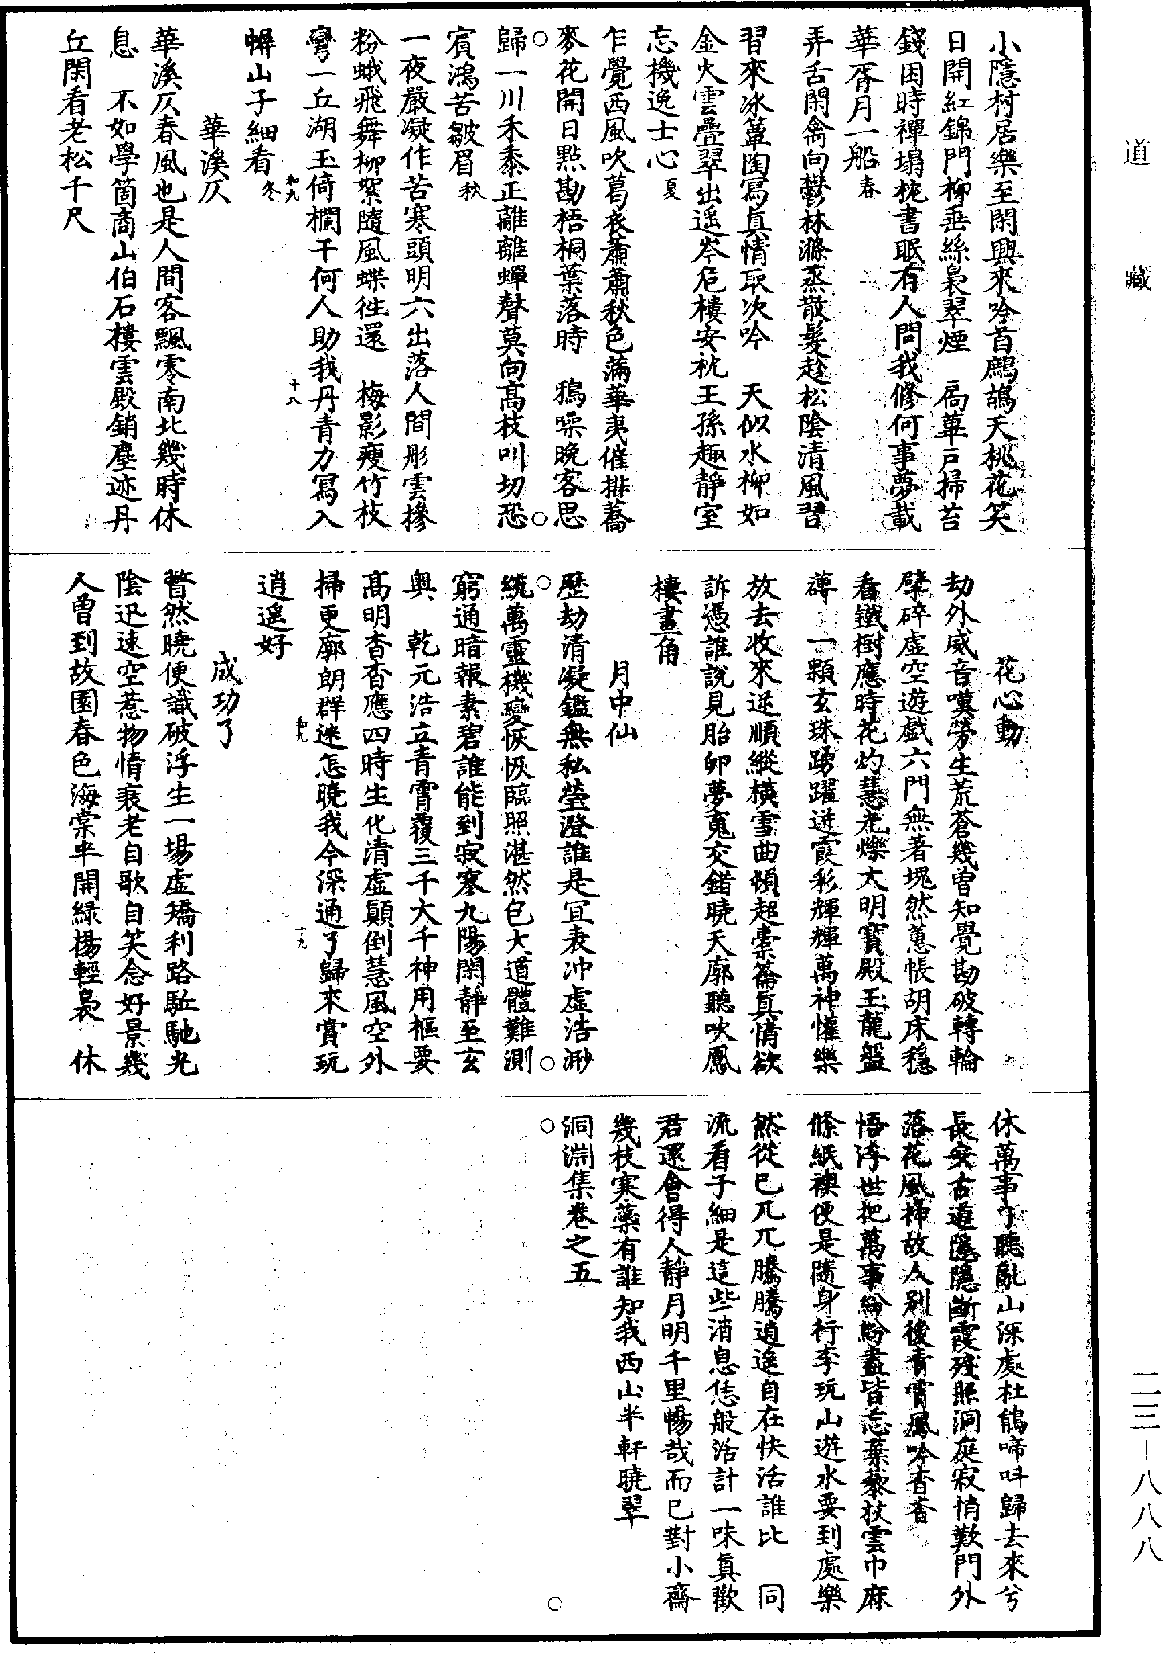 道藏
小隱村居樂至閑興來吟首鷓鴣天桃花笑
日開紅錦門柳垂絲裊翠煙　扃蓽戶掃苔
錢困時禪榻枕書眠有人問我修何事夢載
華胥月一船春
弄舌閑禽向鬱林滌蒸散髮趁松陰清風習
習來冰簟陶寫真情取次吟　天似水柳如
金火雲疊翠出遥岑危樓安枕王孫趣靜室
忘機逸士心夏
乍覺西風吹葛衣蕭蕭秋色滿華夷催排蕎
麥花開日點勘梧桐葉落時　鴉噪晚客思
歸一川禾黍正離離蟬聲莫向高枝叫切恐
賓鴻苦皺眉秋
一夜嚴凝作苦寒頭明六出落人間彤雲摻
粉蛾飛舞柳絮隨風蝶徃還　梅影瘦竹枝
彎一丘湖玉倚欄干何人助我丹青力寫入
幈山子細看冬
華溪仄
華溪仄春風也是人間客飄零南北幾時休
息　不如學箇商山伯石樓雲殿銷塵迹丹
丘閑看老松千尺
花心動
劫外威音嘆勞生荒蒼幾曾知覺勘破轉輪
擘碎虛空遊戲六門無著塊然蕙帳胡床穩
看鐵樹應時花灼慧光爍大明寶殿玉龍盤
礴　一顆玄珠踴躍迸霞彩輝輝萬神懽樂
放去收來逆順縱橫雪曲頓超橐籥真情欲
訴憑誰說見胎卯夢䰟交錯曉天廓聽吹鳳
樓畫角
月中仙
歷劫清凝鑑無私瑩澄誰是宜表冲虛浩渺
統萬靈機變恢恢臨照湛然包大道體難測
窮通暗報素碧誰能到寂寥九陽閑靜至玄
奥　乾元浩立青霄覆三千大千神用樞要
高明杳杳應四時生化清虛顛倒慧風空外
掃更廓朗群迷怎曉我今深通了歸來賞玩
逍遥好
成功了
瞥然曉便識破浮生一場虛矯利路駈馳光
陰迅速空惹物情衰老自歌自笑念好景幾
人曽到故園春色海棠半開綠楊輕裊　休
休萬事了聽亂山深處杜鵑啼呌歸去來兮
長安古道隱隱斷霞殘照洞庭寂悄歎門外
落花風掃故人別後青霄鳳吟杳杳
悟浮世把萬事紛紛盡皆忘棄藜杖雲巾麻
絛紙襖便是隨身行李玩山遊水要到處樂
然從已兀兀騰騰逍遥自在快活誰比　同
流看子細是這些消息恁般活計一味真歡
君還會得人靜月明千里暢哉而已對小齋
幾枝寒藥有誰知我西山半軒曉翠
洞淵集卷之五
二三－八八八